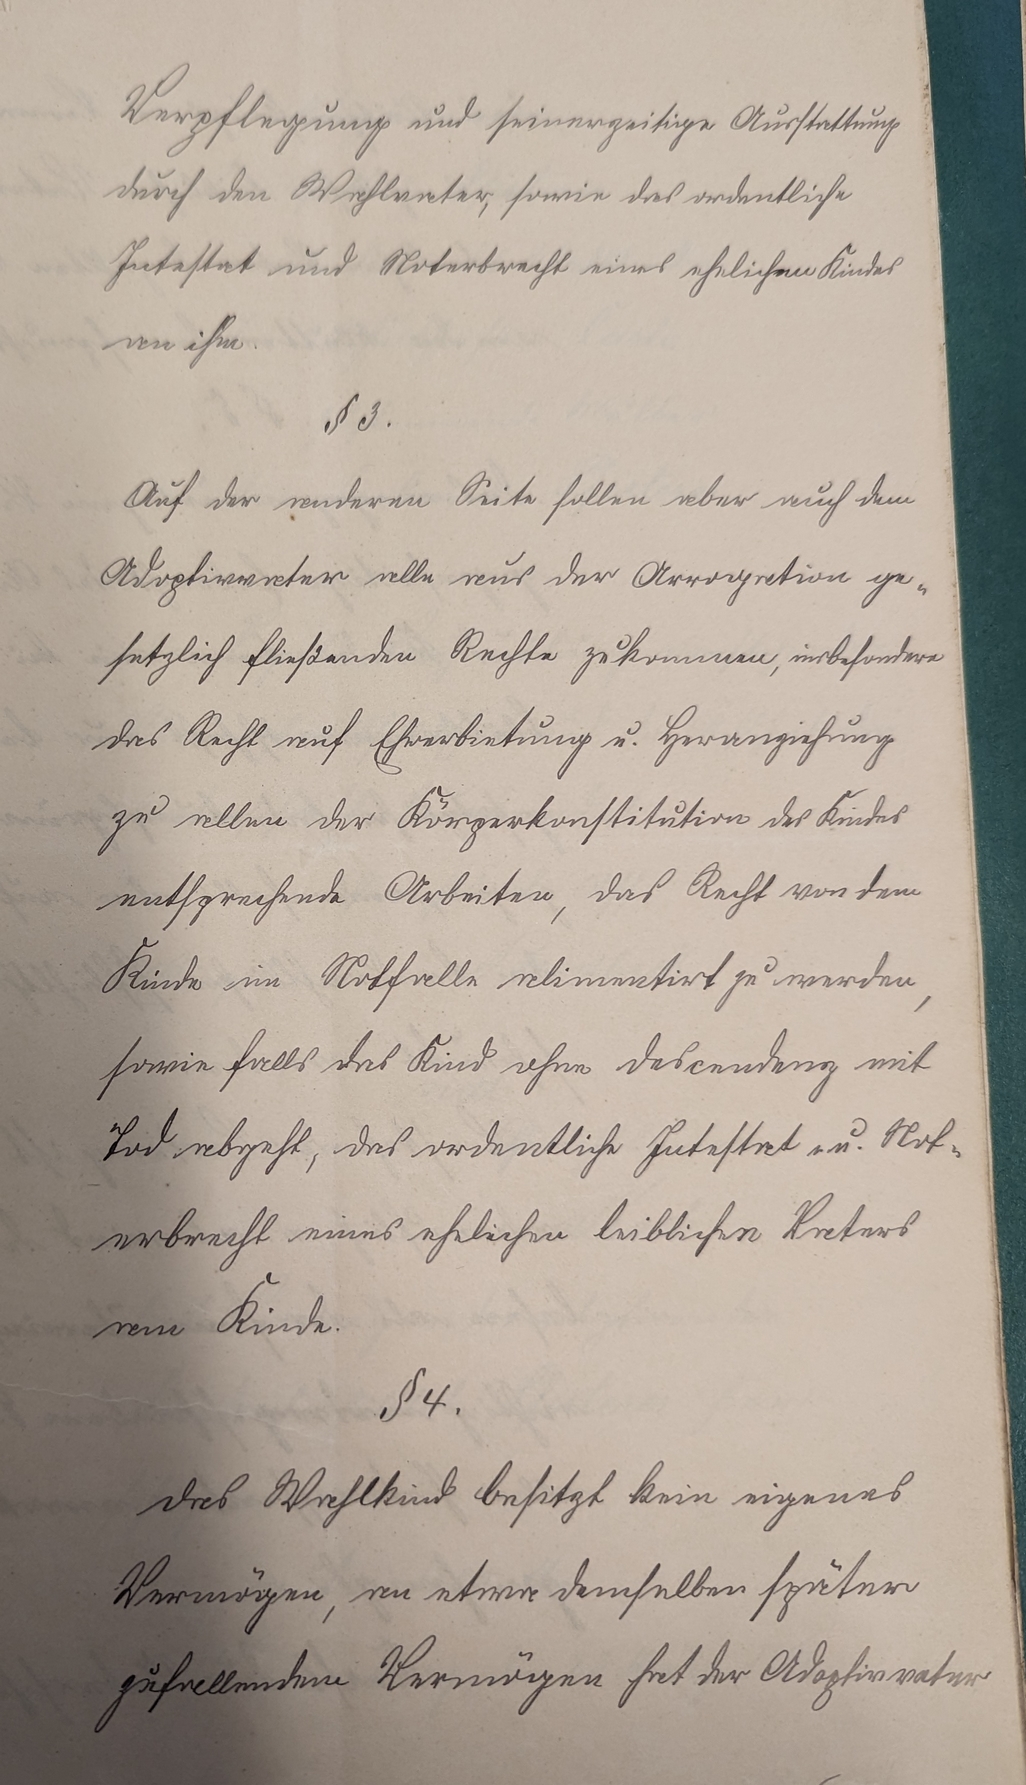 Verpflegung und seinerzeitige Ausstattung
durch den Wahlvater, sowie das ordentliche
Intestat und Noterbrecht eines ehelichen Kindes
an ihm.
§ 3.
Auf der anderen Seite sollen aber auch dem
Adoptivvater alle aus der Arrogation ge-
setzlich fließenden Rechte zukommen, insbesondere
das Recht auf Ehrerbietung u. Heranziehung
zu allen der Körperkonstitution des Kindes
entsprechende Arbeiten, das Recht von dem
Kinde im Notfalle alimentirt zu werden,
sowie falls das Kind ohne Descendenz mit
Tod abgeht, das ordentliche Intestat- u. Not-
erbrecht eines ehelichen leiblichen Vaters
am Kinde.
§ 4.
Das Wahlkind besitzt kein eigenes
Vermögen, an etwa demselben später
zufallendem Vermögen hat der Adoptivvater